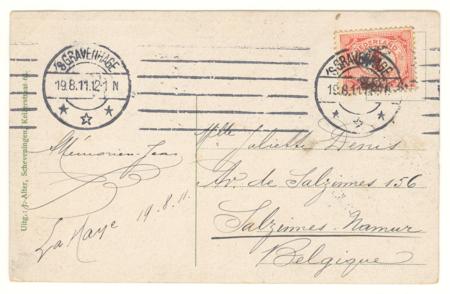 'S GRAVENHAGE
19.8.11.12-1 N
NEDERLAND
'S GRAVENHAGE
19.8.11.12-1 N
Uitg.: J. Alter, Scheveningen, Keizerstraat
Mlle Juliette Denis
Av. de Salzinnes 156
Salzinnes-Namur
Belgique
La Haye 19.8.11.